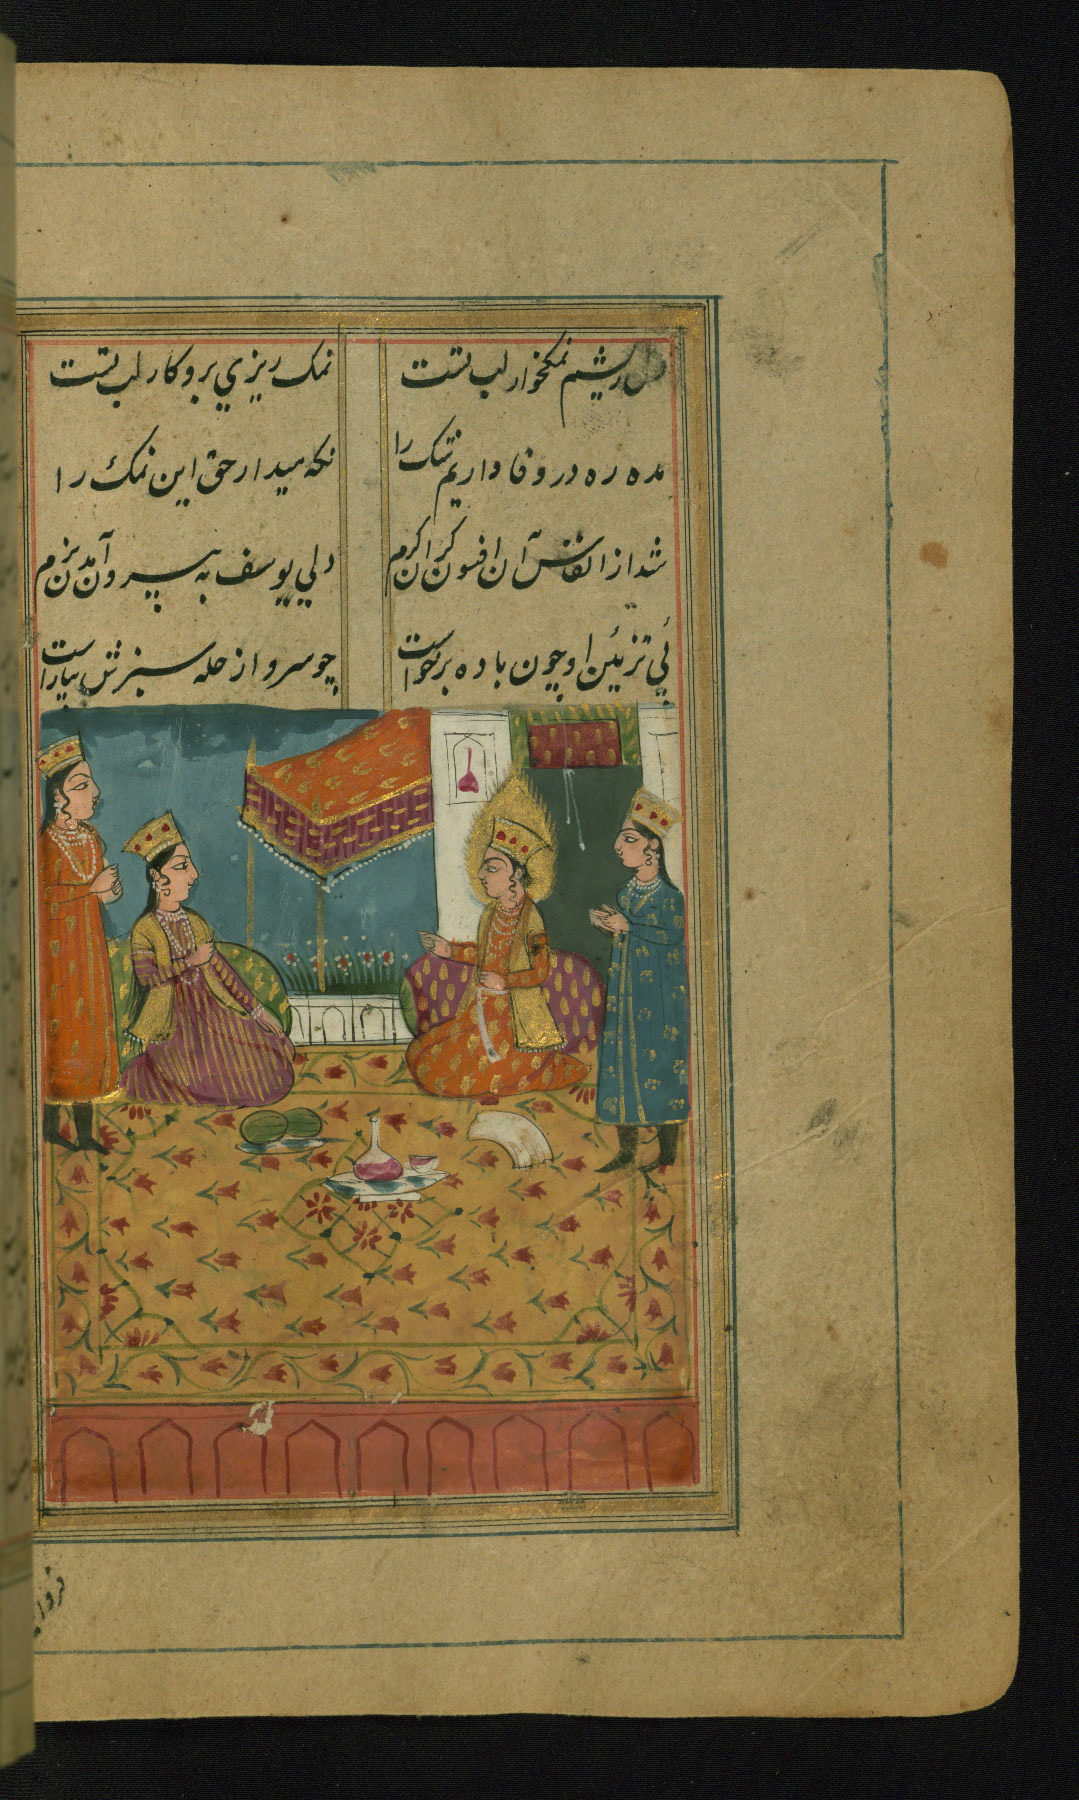 دل ریشم نمکخوار لب تست نمک ریزي برو کار لب تست
مده ره در وفا داریم شک را نکه میدار حق این نمک را
شد از انفاش آن افسون کر اکرم دلي یوسف به بیرون آمدن نرم
ئي تزئین او چون باده برخواست چو سرو از حله سبزش بیاراست
فرو